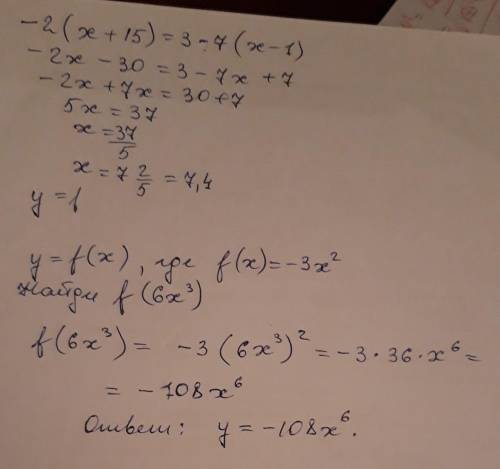 -2(x+15)=3-7(x-1)
-2x-30=3-7x+7
-2x+7x=30+7
5x=37
x=37/5
x=7 2/5=7,4
y=f
y=f(x), где f(x)=-3x²
Найди f(6x³)
f(6x³)= -3(6x³)²=-3·36·x⁶=
= -108x⁶
Ответ: y=-108x⁶.